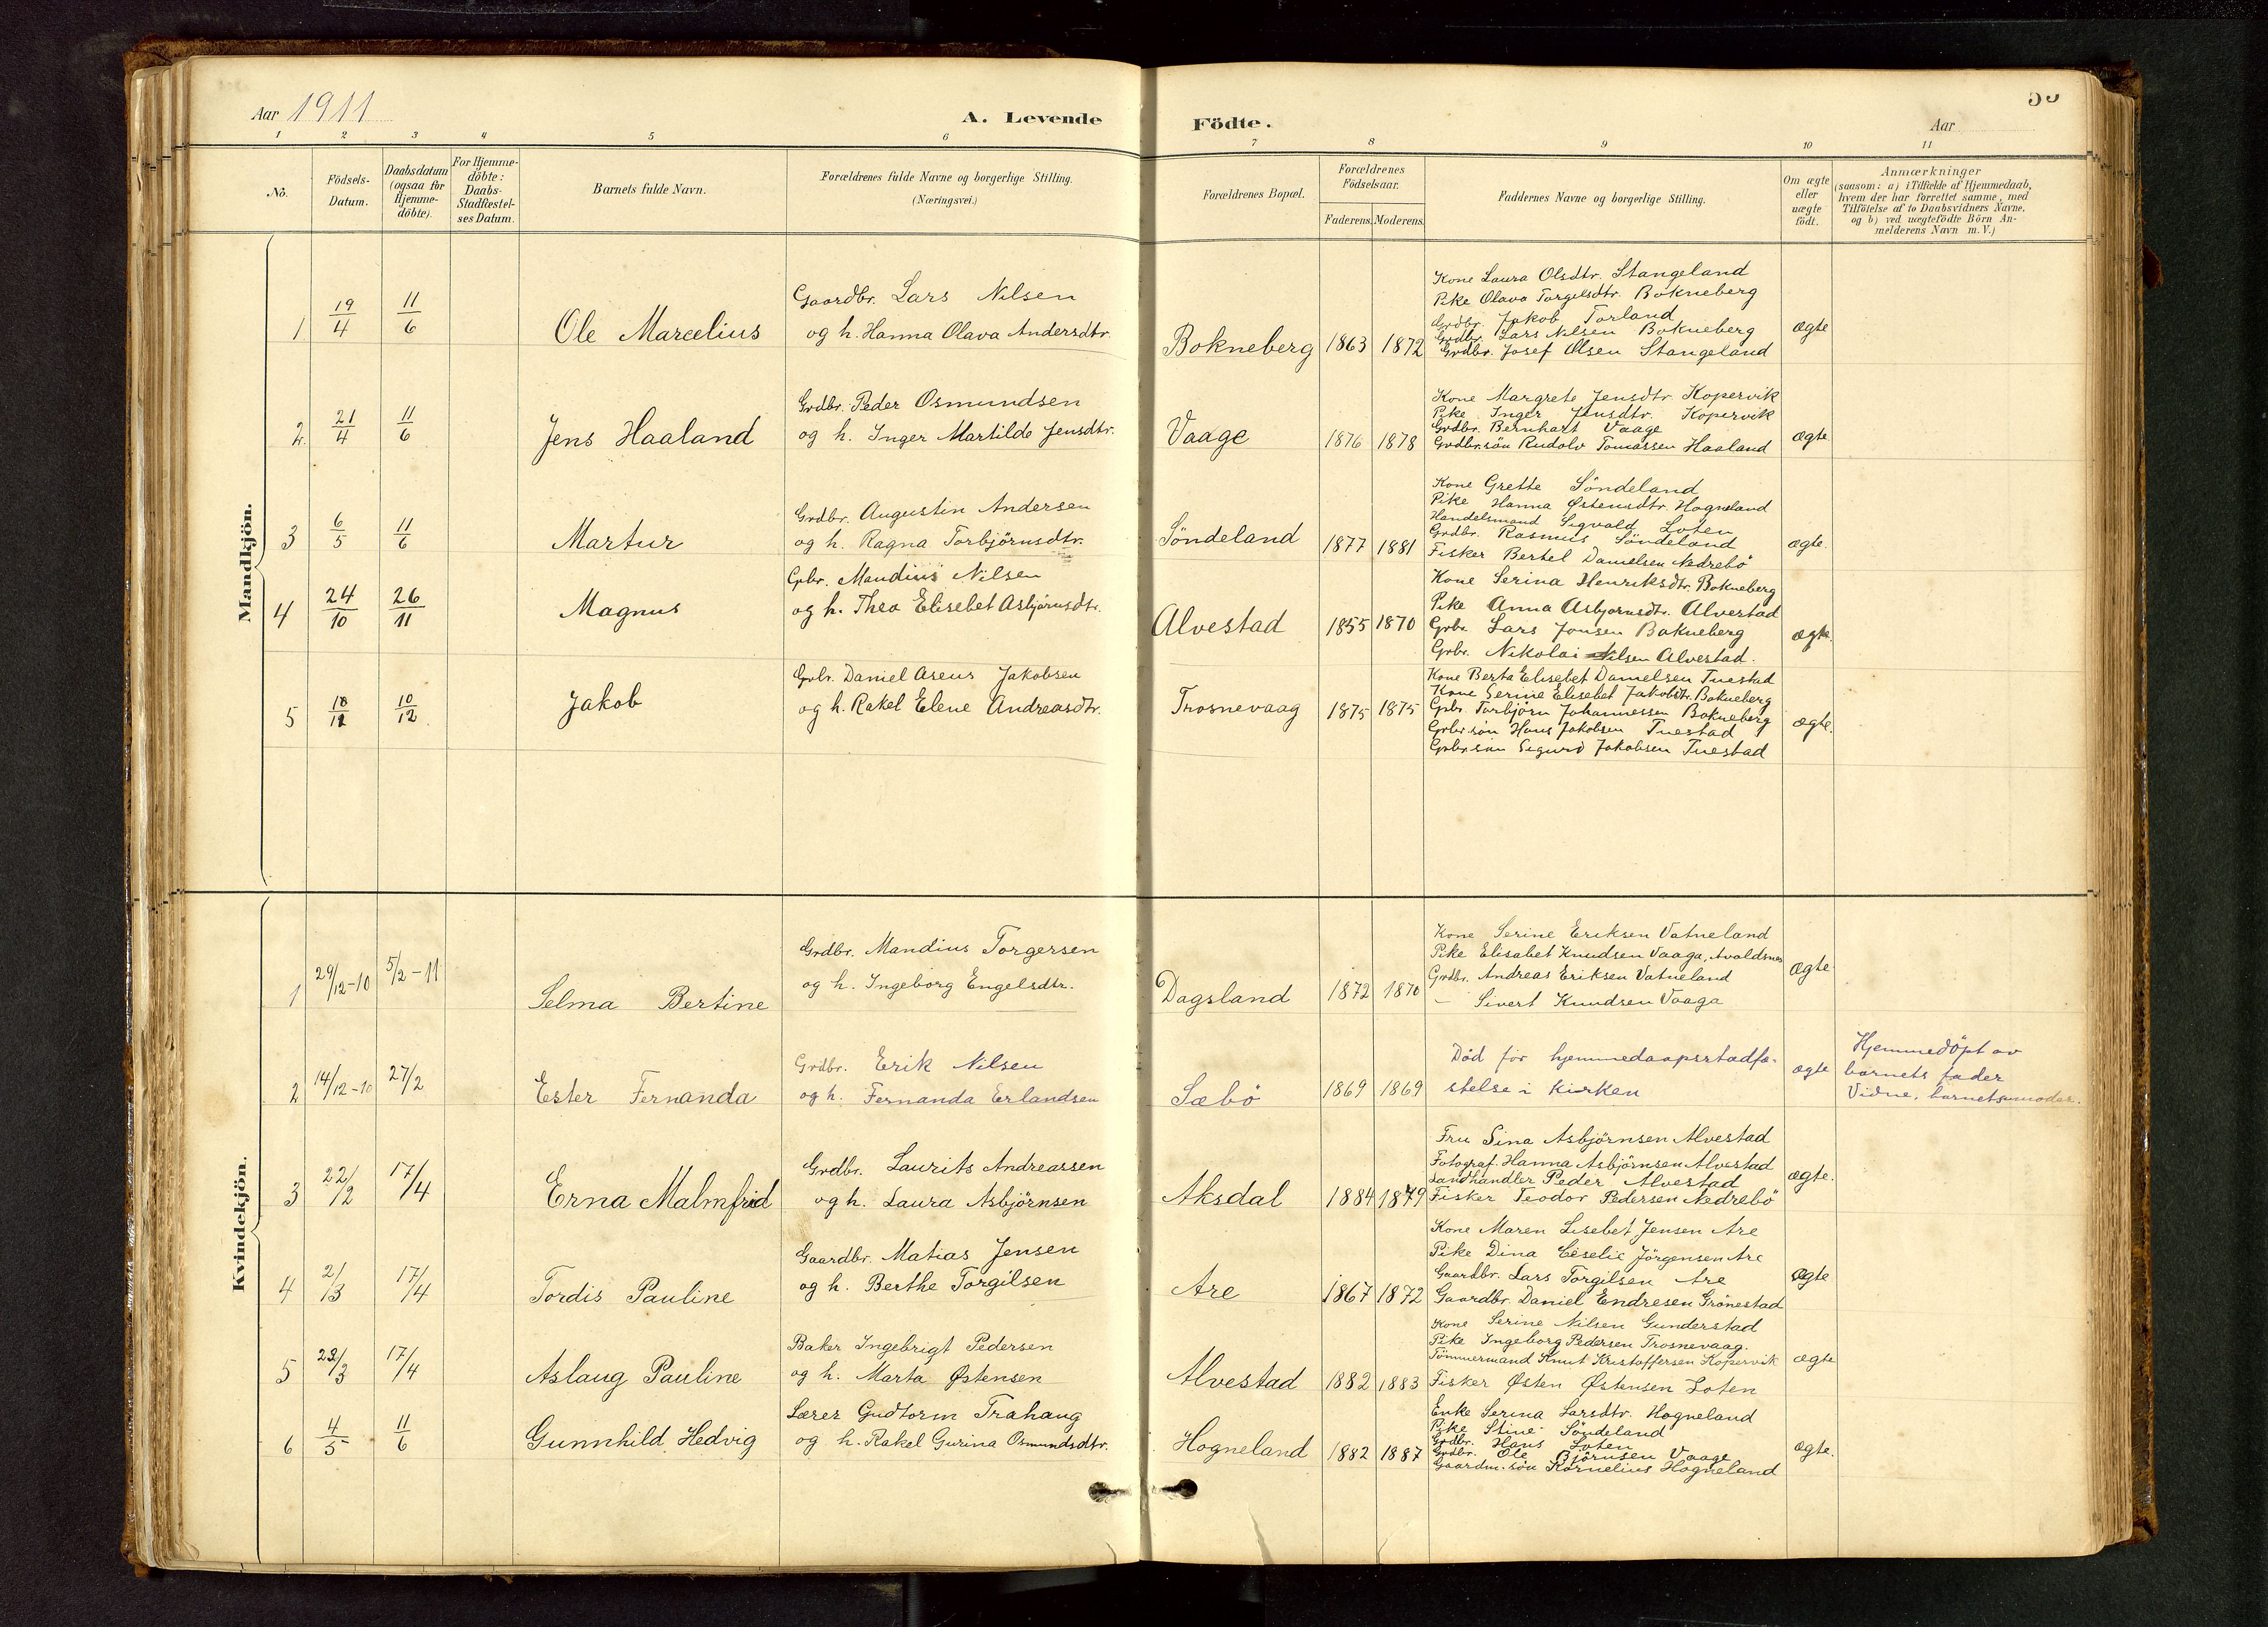 Aar 1911
A. Levende Födte.
Aar
1 2 3 4 5 6 7 8 9 10 11
No.
Födsels-Datum.
Daabsdatum (ogsaa för Hjemme-döbte).
For Hjemme-döbte: Daabs-Stadfæstel-ses Datum.
Barnets fulde Navn.
Forældrenes fulde Navne og borgerlige Stilling. (Næringsvei.)
Forældrenes Bopæl.
Forældrenes Födselsaar.
Faderens. Moderens.
Faddernes Navne og borgerlige Stilling.
Om ægte eller uægte födt.
Anmærkninger
(saasom: a) i Tilfælde af Hjemmedaab,
hvem der har forrettet samme, med
Tilföielse af to Daabsvidners Navne,
og b) ved uægtefödte Börn An-
melderens Navn m. V.)
Mandkjön.
1 19/4 11/6 Ole Marcelius
Gaardbr. Lars Nilsen
og h. Hanna Olava Andersdtr.
Bokneberg 1863 1872
Kone Laura Olsdtr. Stangeland
Pike Olava Torgilsdtr. Bokneberg
Grdbr. Jakob Torland
Grdbr. Lars Nilsen Bokneberg
Grdbr. Josef Olsen Stangeland
ægte
2. 21/4 11/6 Jens Haaland
Grdbr. Peder Osmundsen
og h. Inger Martilde Jensdtr.
Vaage 1876 1878
Kone Margrete Jensdtr. Kopervik
Pike Inger Jensdtr. Kopervik
Grdbr. Bernhart Vaage
Grdbr.sön Rudolv Tomassen Haaland
ægte
3 6/5 11/6 Martur
Grdbr. Augustin Andersen
og h. Ragna Torbjörnsdtr.
Söndeland 1877 1881
Kone Grette Söndeland
Pike Hanna Østensdtr. Hogneland
Handelsmand Sigvald Loten
Grdbr. Rasmus Söndeland
Fisker Bertel Danielsen Nedrebö
ægte.
4 24/10 26/11 Magnus
Grbr. Mandius Nilsen
og h. Thea Elisebet Asbjörnsdtr.
Alvestad 1855 1870
Kone Serina Henriksdtr. Bokneberg
Pike Anna Asbjornsdtr. Alvestad
Grbr. Lars Jonsen Bokneberg
Grbr. Nikolai Nilsen Alvestad.
ægte.
5 10/12 Jakob
Grbr. Daniel Aseus Jakobsen
og h. Rakel Elene Andreasdtr.
Trosnevaag 1875 1875
Kone Berta Elisebet Danielsen Tuestad
Kone Serine Elisebet Jakobdtr. Bokneberg
Gbr. Torbjörn Johannessen Bokneberg
Grbr.sön Hans Jakobsen Tuestad
Grbr.sön Sigurd Jakobsen Tuestad
ægte.
Kvindekjön.
1 29/12-10 5/2-11 Selma Bertine
Grdbr. Mandius Torgersen
og h. Ingeborg Engelsdtr.
Dagsland 1872 1870
Kone Serine Eriksen Vatneland
Pike Elisabet Knudsen Vaaga, Avaldsnes
Grdbr. Andreas Eriksen Vatneland
— Sivert Knudsen Vaaga
ægte
2 14/12-10 27/2 Ester Fernanda
Grdbr. Erik Nilsen
og h. Fernanda Erlandsen
Sæbö 1869 1869
Död för hjemmedaapsstadfæ-
stelse i kirken
ægte
Hjemmedöpt av
barnets fader
Vidne, barnets moder.
3 22/2 17/4 Erna Malmfrid
Grdbr. Laurits Andreassen
og h. Laura Asbjörnsen
Aksdal 1884 1879
Fru Sina Asbjörnsen Alvestad
Fotograf. Hanna Asbjörnsen Alvestad
Landhandler Peder Alvestad
Fisker Teodor Pedersen Nedrebö
ægte.
4 2/3 17/4 Tordis Pauline
Gaardbr. Matias Jensen
og h. Berthe Torgilsen
Are 1867 1872
Kone Maren Lisebet Jensen Are
Pike Dina Ceselie Jörgensen Are
Gaardbr. Lars Torgilsen Are
Gaardbr. Daniel Endresen Grönestad
ægte
5 23/3 17/4 Aslaug Pauline
Baker Ingebrigt Pedersen
og h. Marta Østensen
Alvestad 1882 1883
Kone Serine Nilsen Gunderstad
Pike Ingeborg Pedersen Trosnevaag.
Tömmermand Knut Kristoffersen Kopervik
Fisker Østen Østensen Loten
ægte
6 4/5 11/6 Gunnhild Hedvig
Lærer Gudtorm Trahaug
og h. Rakel Gurina Osmundsdtr.
Hogneland 1882 1887
Enke Serina Larsdtr. Hogneland
Pike Stine Söndeland
Grdbr. Hans Loten
Grdbr. Ole Björnsen Vaage
Gaardm.sön Kornelius Hogneland
ægte.